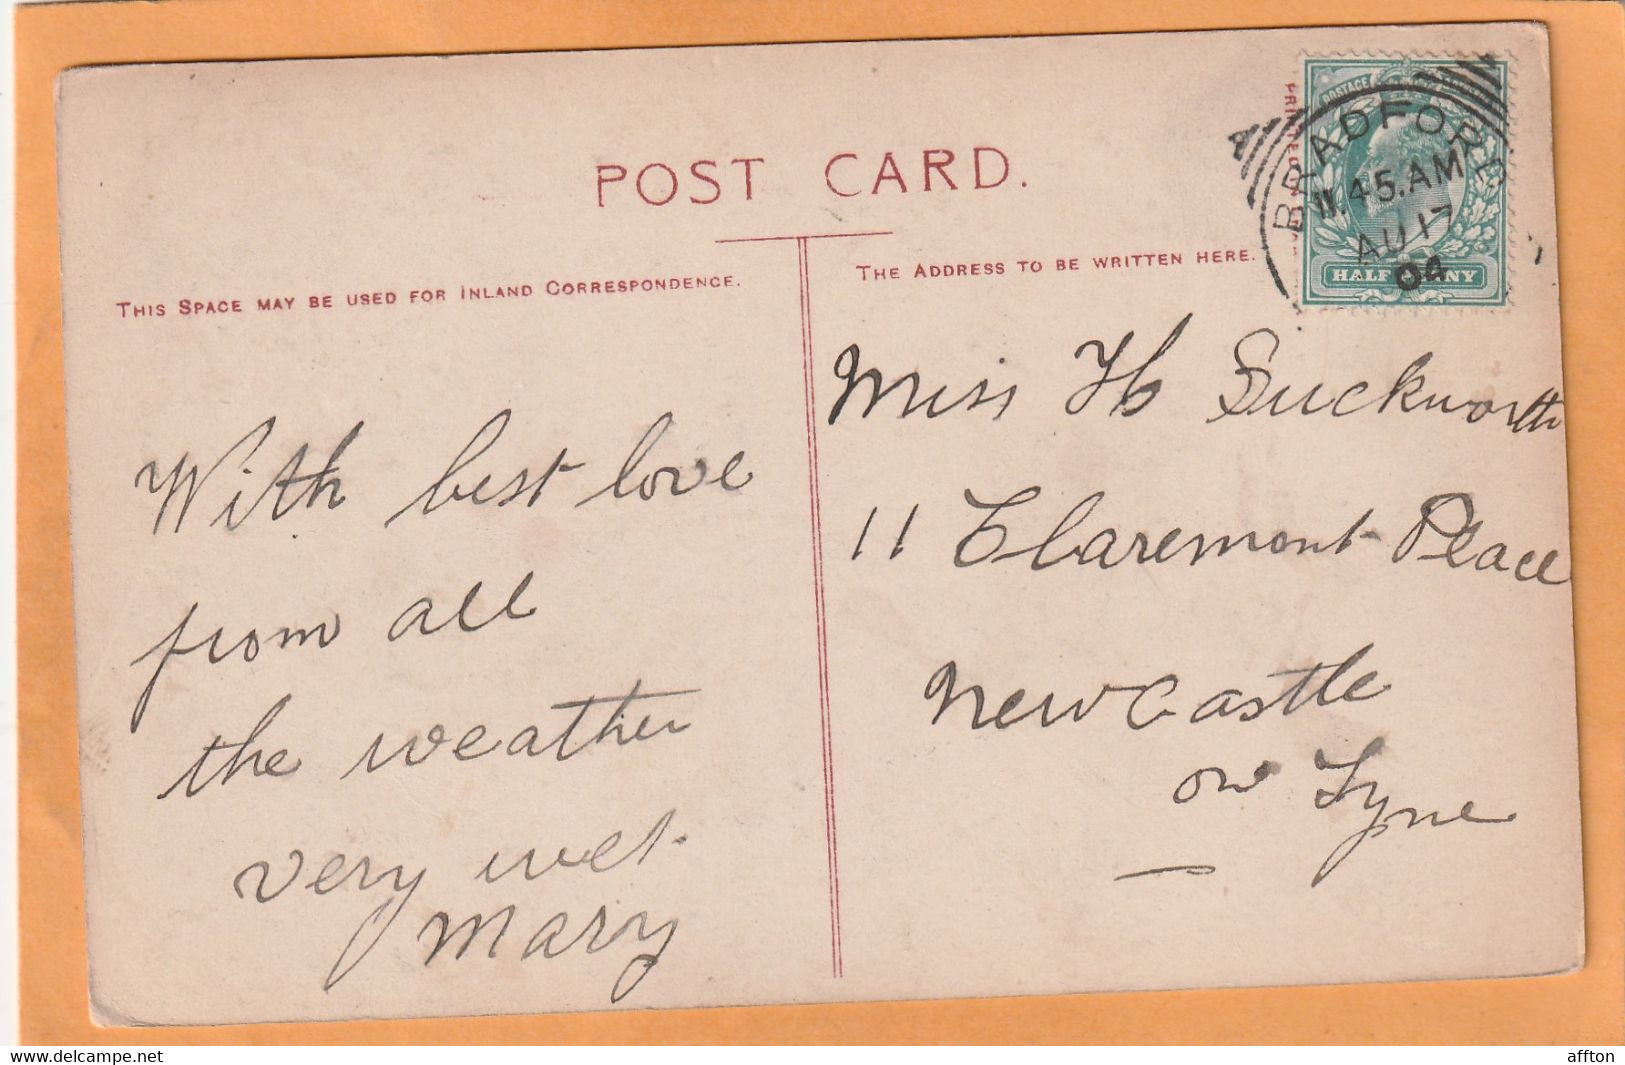 POST CARD.
THIS SPACE MAY BE USED FOR INLAND CORRESPONDENCE.
THE ADDRESS TO BE WRITTEN HERE.
PRINTED
POSTAGE
HALFPENNY
BRADFORD
11.45.AM
AU 17
04
With best love
from all
the weather
very wet
Mary
Miss H Suckworth
11 Claremont Place
Newcastle
on Tyne
www.delcampe.net
affton